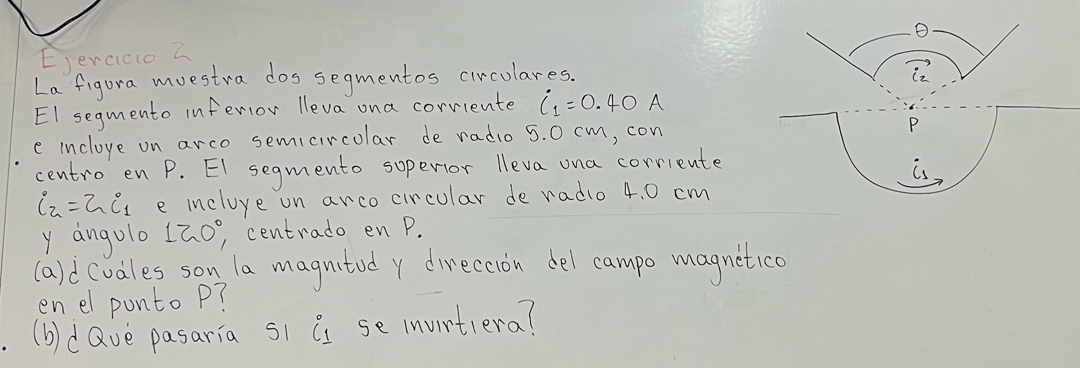 Ejercicio 2
La figura muestra dos segmentos circulares.
El segmento inferior lleva una corriente i₁=0.40 A
e incluye un arco semicircular de radio 5.0 cm, con
centro en P. El segmento superior lleva una corriente
i₂=2i₁ e incluye un arco circular de radio 4.0 cm
y ángulo 120°, centrado en P.
(a)¿Cuáles son la magnitud y dirección del campo magnético
en el punto P?
(b)¿Qué pasaría si i₁ se invirtiera?
θ
i₂
P
i₁